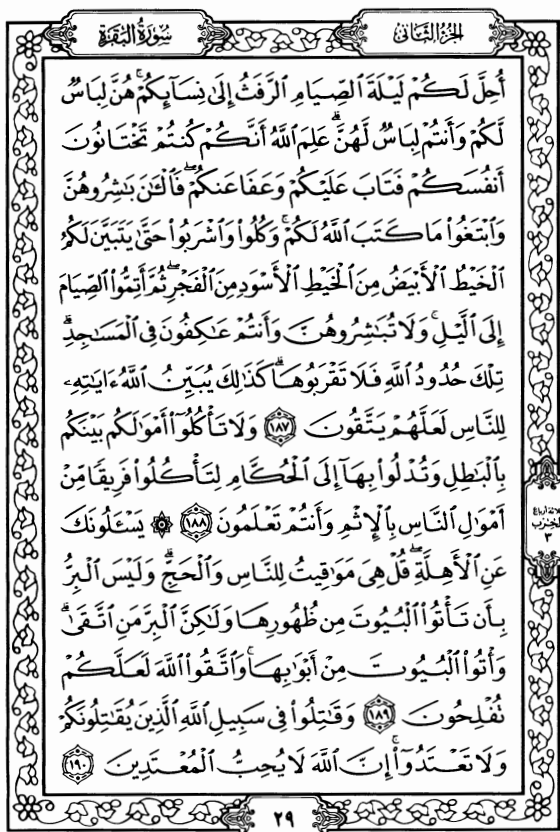 الجزء الثاني
سورة البقرة
أُحِلَّ لَكُمْ لَيْلَةَ ٱلصِّيَامِ ٱلرَّفَثُ إِلَىٰ نِسَآئِكُمْ ۚ هُنَّ لِبَاسٌ
لَّكُمْ وَأَنتُمْ لِبَاسٌ لَّهُنَّ ۗ عَلِمَ ٱللَّهُ أَنَّكُمْ كُنتُمْ تَخْتَانُونَ
أَنفُسَكُمْ فَتَابَ عَلَيْكُمْ وَعَفَا عَنكُمْ ۖ فَٱلْـَٰٔنَ بَـٰشِرُوهُنَّ
وَٱبْتَغُوا۟ مَا كَتَبَ ٱللَّهُ لَكُمْ ۚ وَكُلُوا۟ وَٱشْرَبُوا۟ حَتَّىٰ يَتَبَيَّنَ لَكُمُ
ٱلْخَيْطُ ٱلْأَبْيَضُ مِنَ ٱلْخَيْطِ ٱلْأَسْوَدِ مِنَ ٱلْفَجْرِ ۖ ثُمَّ أَتِمُّوا۟ ٱلصِّيَامَ
إِلَى ٱلَّيْلِ ۚ وَلَا تُبَـٰشِرُوهُنَّ وَأَنتُمْ عَـٰكِفُونَ فِى ٱلْمَسَـٰجِدِ ۗ
تِلْكَ حُدُودُ ٱللَّهِ فَلَا تَقْرَبُوهَا ۗ كَذَٰلِكَ يُبَيِّنُ ٱللَّهُ ءَايَـٰتِهِۦ
لِلنَّاسِ لَعَلَّهُمْ يَتَّقُونَ ١٨٧ وَلَا تَأْكُلُوٓا۟ أَمْوَٰلَكُم بَيْنَكُم
بِٱلْبَـٰطِلِ وَتُدْلُوا۟ بِهَآ إِلَى ٱلْحُكَّامِ لِتَأْكُلُوا۟ فَرِيقًا مِّنْ
أَمْوَٰلِ ٱلنَّاسِ بِٱلْإِثْمِ وَأَنتُمْ تَعْلَمُونَ ١٨٨ ۞ يَسْـَٔلُونَكَ
عَنِ ٱلْأَهِلَّةِ ۖ قُلْ هِىَ مَوَٰقِيتُ لِلنَّاسِ وَٱلْحَجِّ ۗ وَلَيْسَ ٱلْبِرُّ
بِأَن تَأْتُوا۟ ٱلْبُيُوتَ مِن ظُهُورِهَا وَلَـٰكِنَّ ٱلْبِرَّ مَنِ ٱتَّقَىٰ ۗ
وَأْتُوا۟ ٱلْبُيُوتَ مِنْ أَبْوَٰبِهَا ۚ وَٱتَّقُوا۟ ٱللَّهَ لَعَلَّكُمْ
تُفْلِحُونَ ١٨٩ وَقَـٰتِلُوا۟ فِى سَبِيلِ ٱللَّهِ ٱلَّذِينَ يُقَـٰتِلُونَكُمْ
وَلَا تَعْتَدُوٓا۟ ۚ إِنَّ ٱللَّهَ لَا يُحِبُّ ٱلْمُعْتَدِينَ ١٩٠
أرباع
الحزب
٣
٢٩